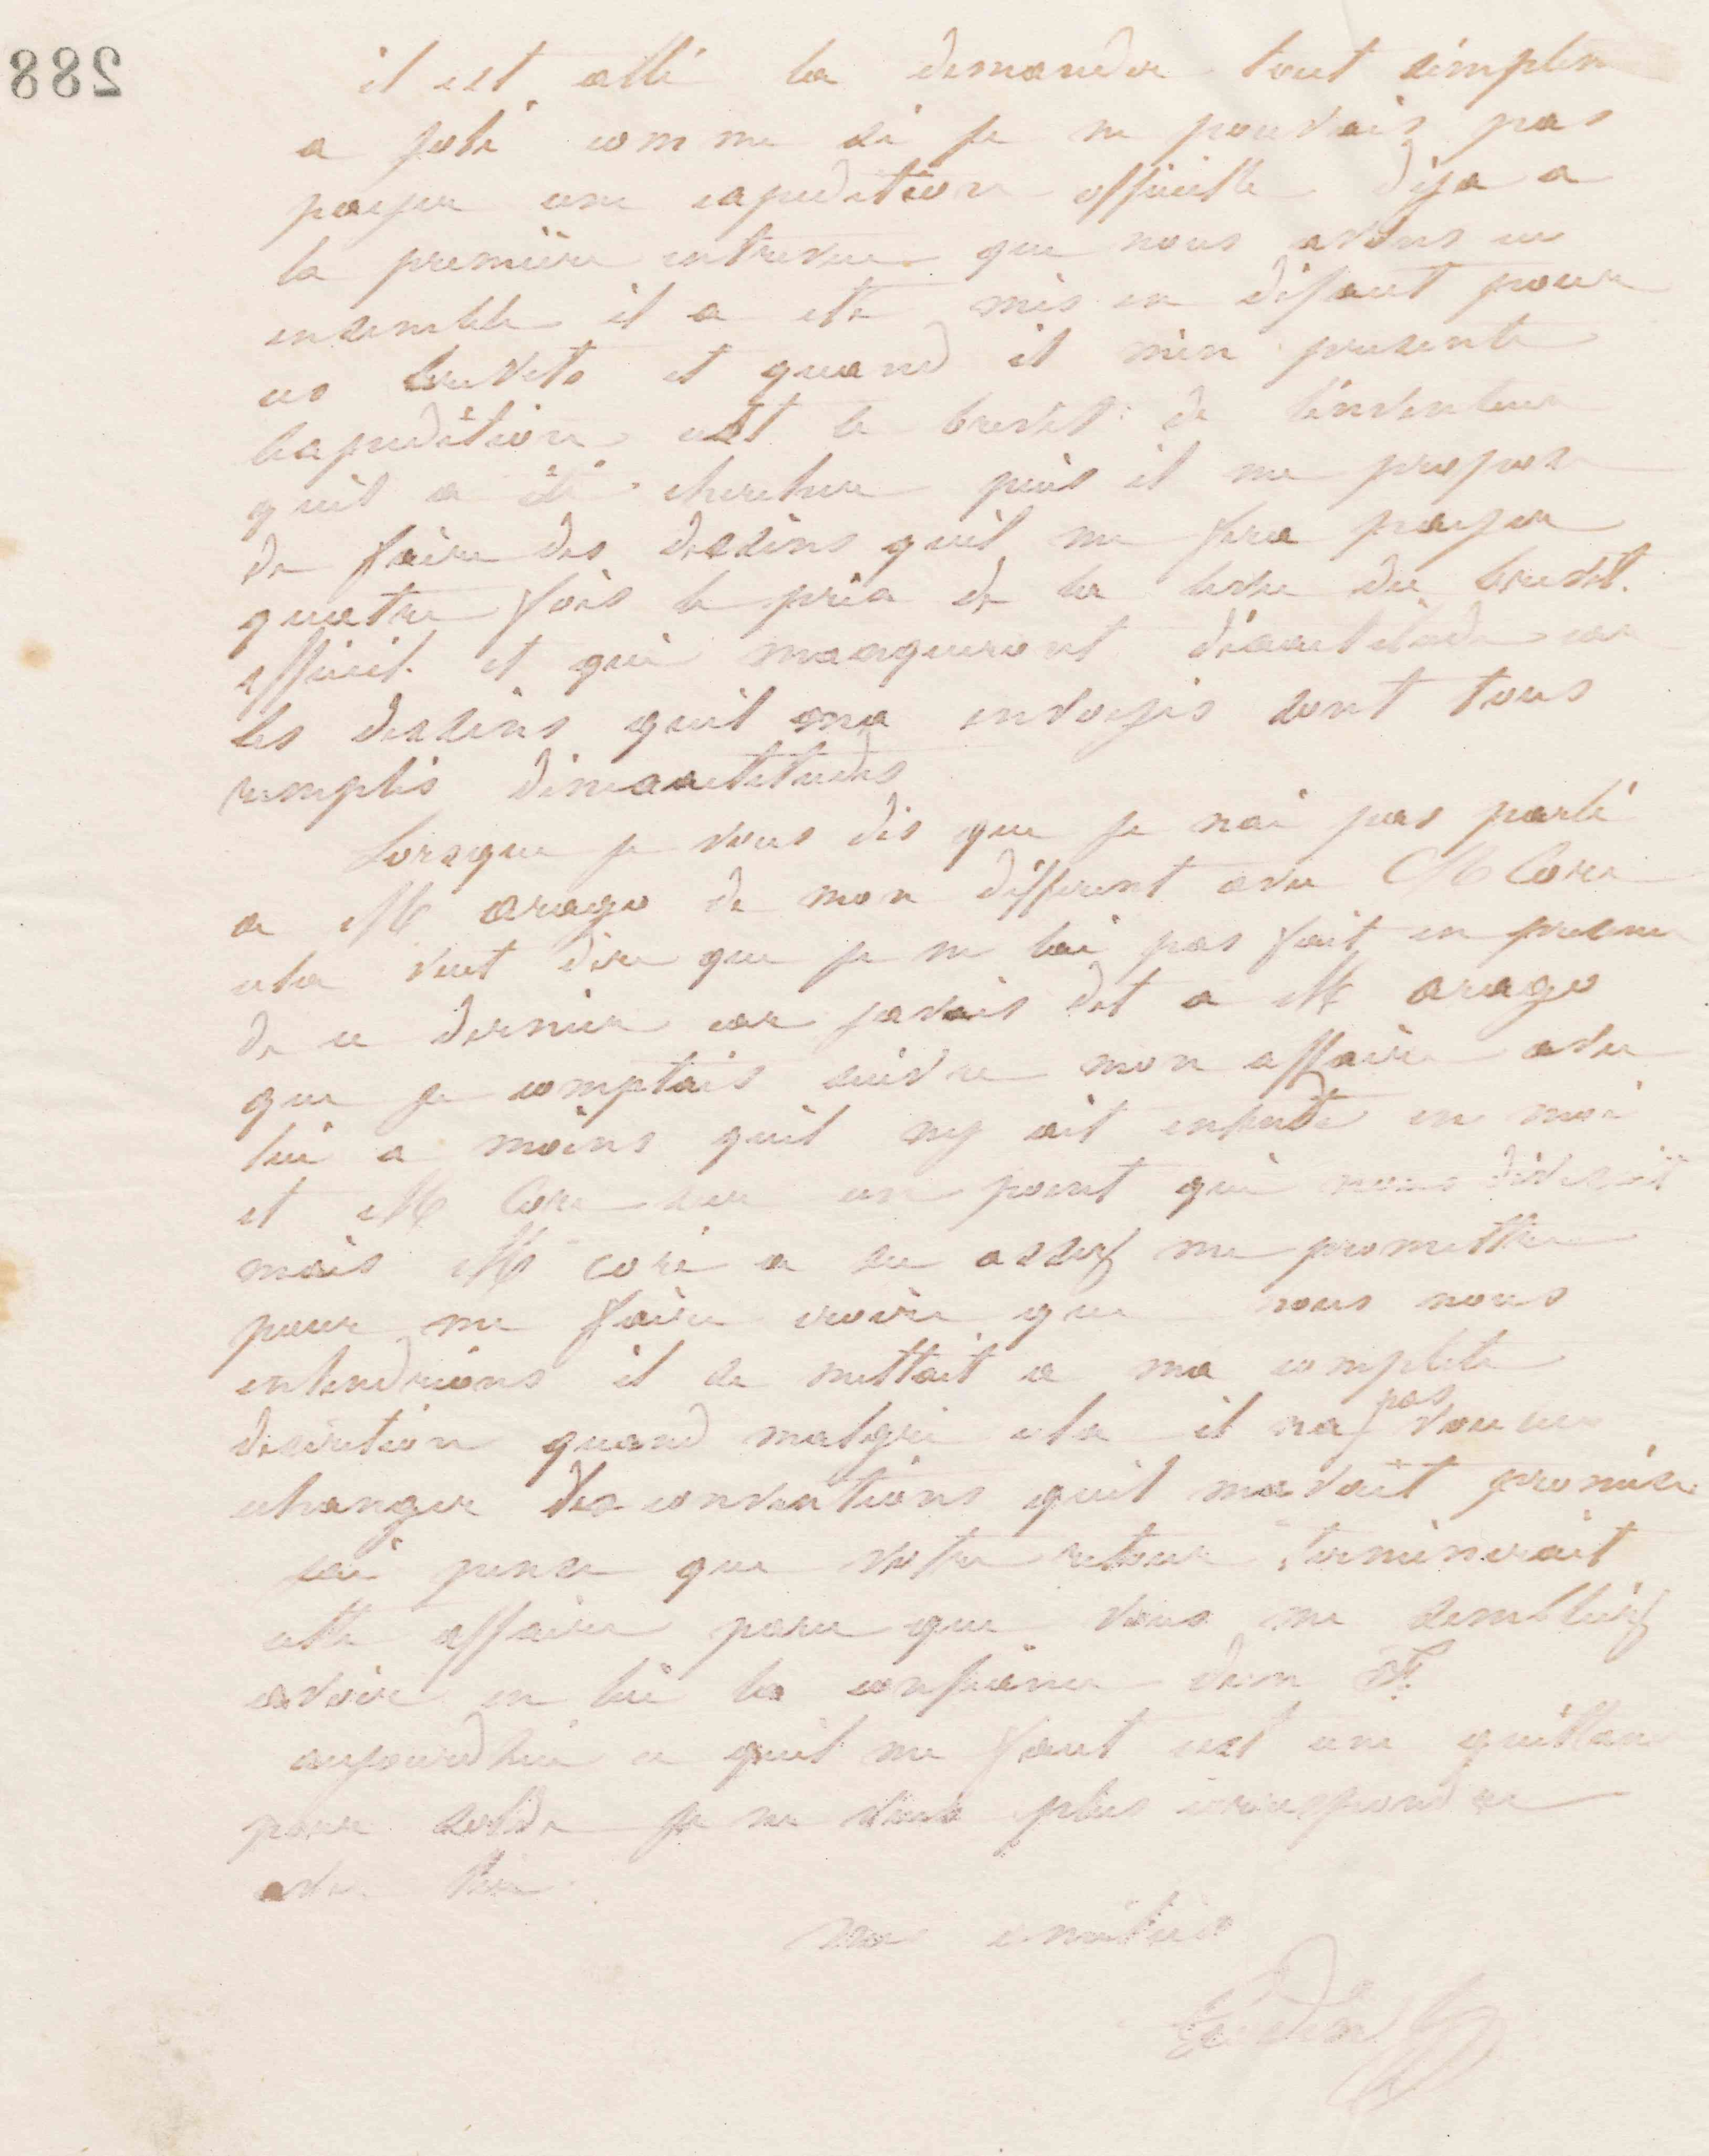 288
il est allé la demander tout simplem
a joli comme si je ne pouvais pas
payer une expedition officielle deja a
la première entrevue que nous avons eu
ensemble il a ete mis en defaut pour
ces brevets et quand il m'en presente
lexpedition cest le brevet de linventeur
quil a été chercher puis il me propose
de faire des dessins quil me fera payer
quatre fois le prix de la levée du brevet
officiel et qui manqueront dexactitude car
les dessins quil ma envoyés sont tous
remplis dinexactitudes
Lorsque je vous dis que je nai pas parlé
a M arago de mon différent avec M Coré
cela veut dire que je ne lai pas fait en presence
de ce dernier car javais dit a M arago
que je comptais suivre mon affaire avec
lui a moins quil ny ait entente en moi
et M Coré sur un point qui nous divisait
mais M coré a su assez me promettre
pour me faire croire que nous nous
entendrions il se mettait a ma complete
discretion quand malgré cela il na pas voulu
changer des conventions quil mavait promise
jai pensé que votre retour terminerait
cette affaire parce que vous me sembliez
avoir en lui la confiance dun F.
aujourdhui ce quil me faut cest une quittance
pour solde je ne veux plus correspondre
avec lui
mes amitiés
Godin